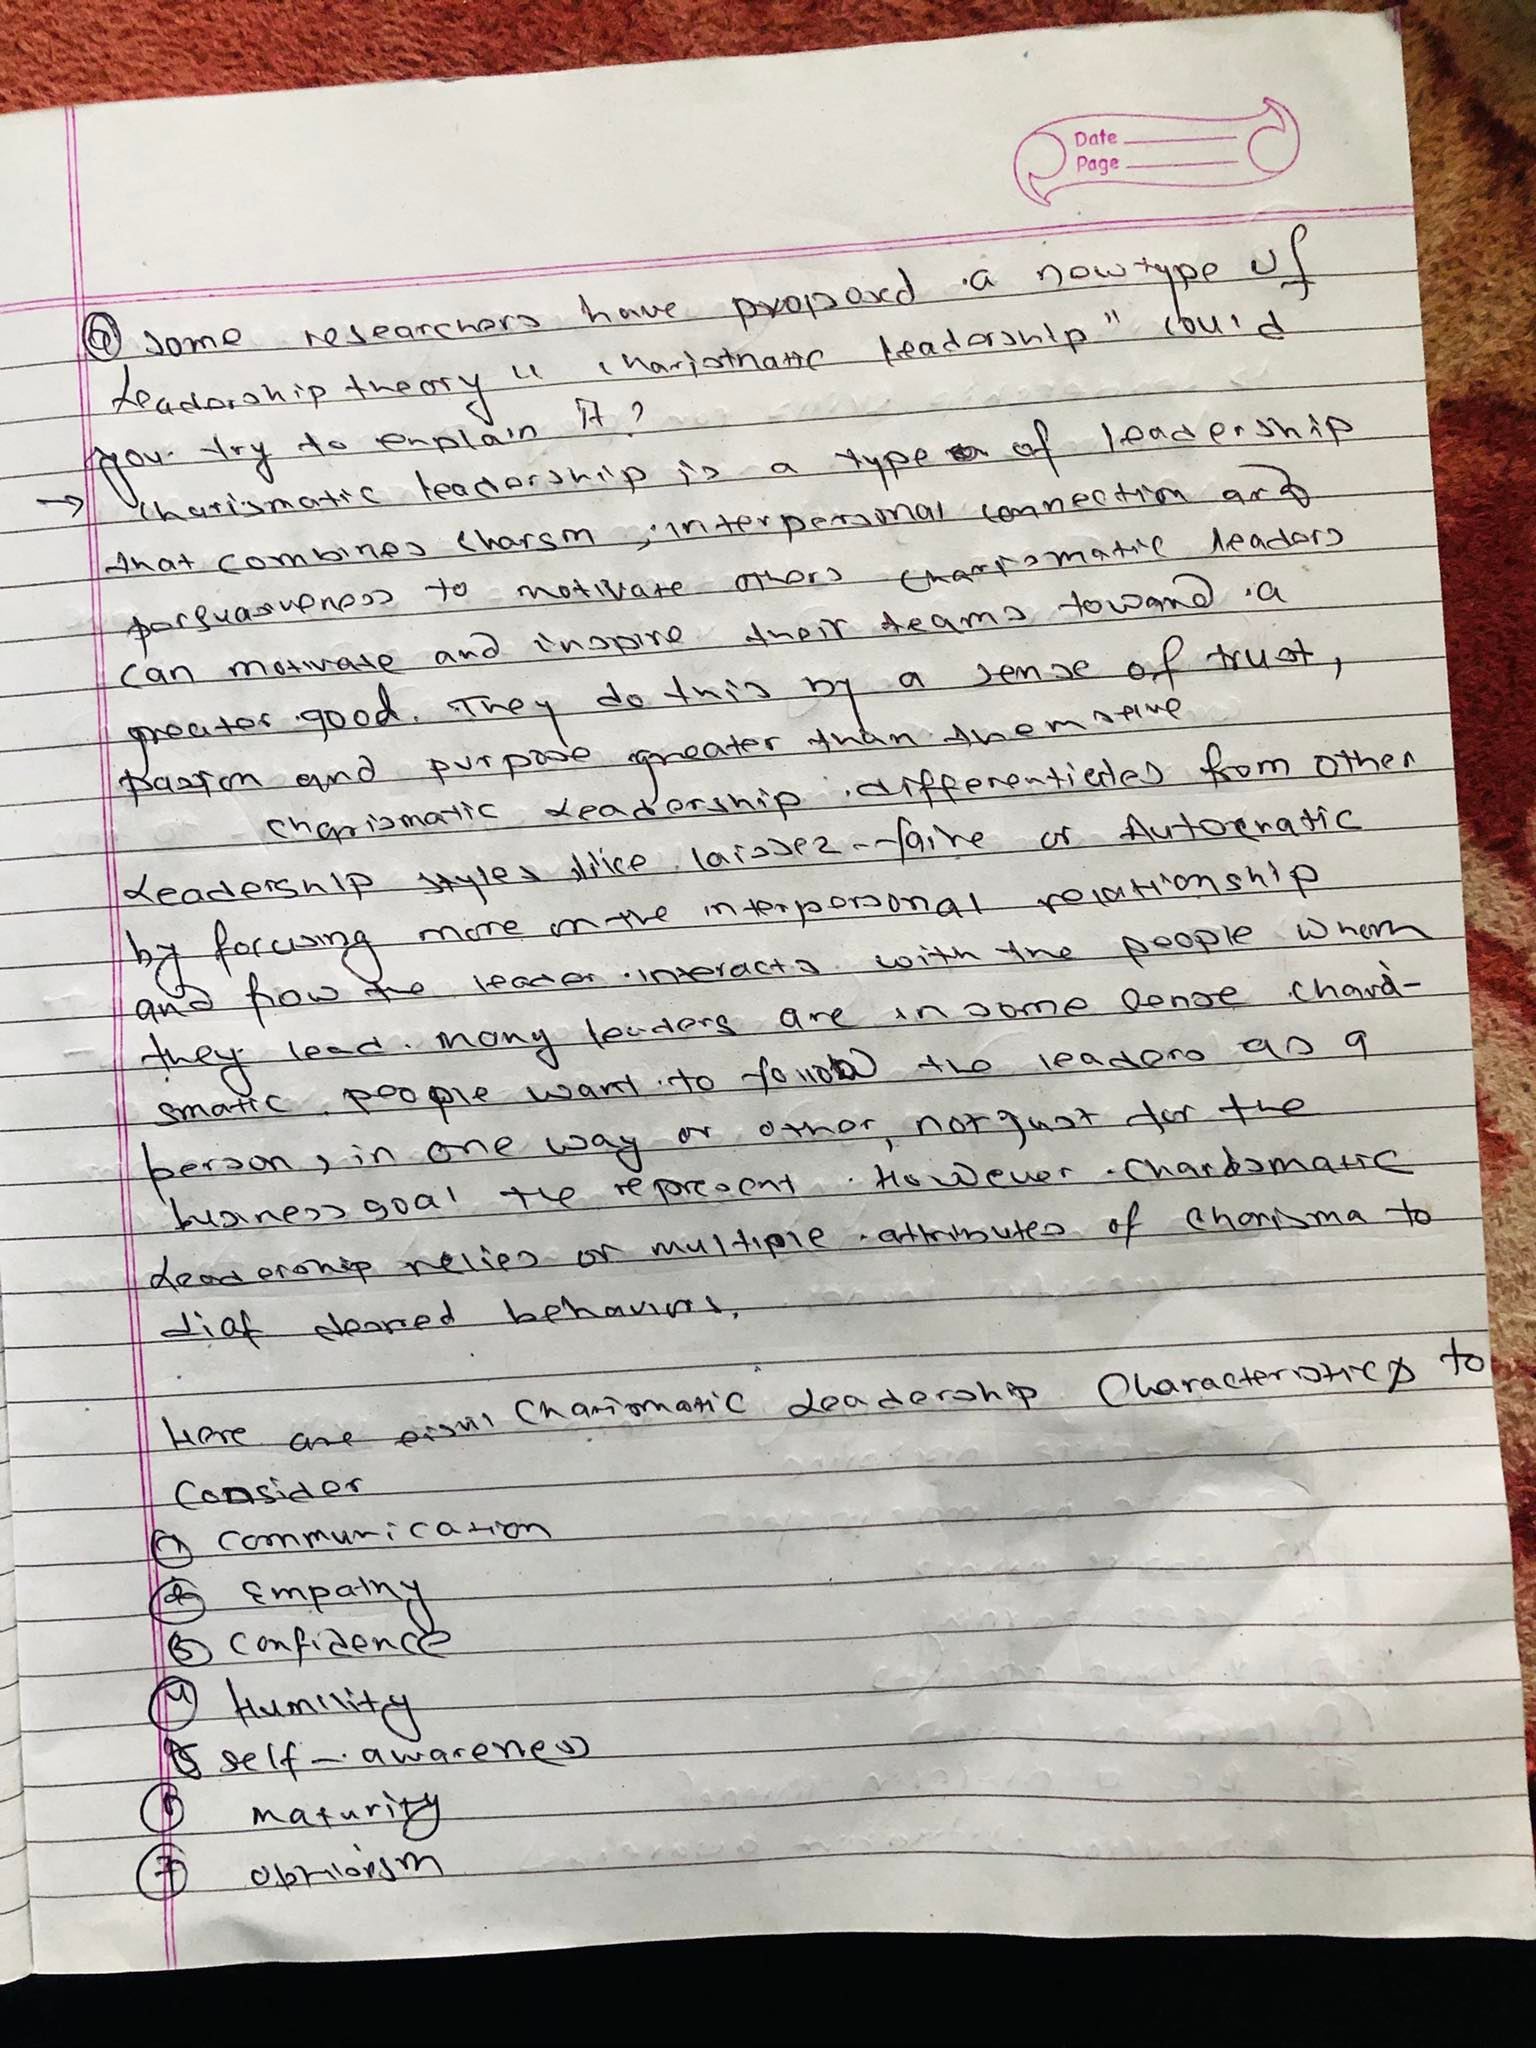 Date
Page
④ some researchers have proposed a now type of
Leadership theory " charistnatic leadership" could
you try to enplain it?
→ charismatic leadership is a type of leadership
that combines charsm, interpersonal connection and
persuasiveness to motivate others charismatic leaders
can motivate and inspire their teams toward a
greater good. They do this by a sense of trust,
passion and purpose greater than themselve
charismatic Leadership differentiates from other
Leadership styles like laissez-faire or Autocratic
by focusing more on the interpersonal relationship
and how the leader interacts with the people whom
they lead. many leaders are in some sense chari-
smatic. people want to follow the leaders as a
person, in one way or other, not just for the
business goal the represent. However charismatic
Leadership relies on multiple attributes of charisma to
desired behaviors.
Here are Charismatic Leadership Characteristics to
Consider
① communication
② Empathy
③ Confidence
④ Humility
5 self-awareness
⑥ maturity
⑦